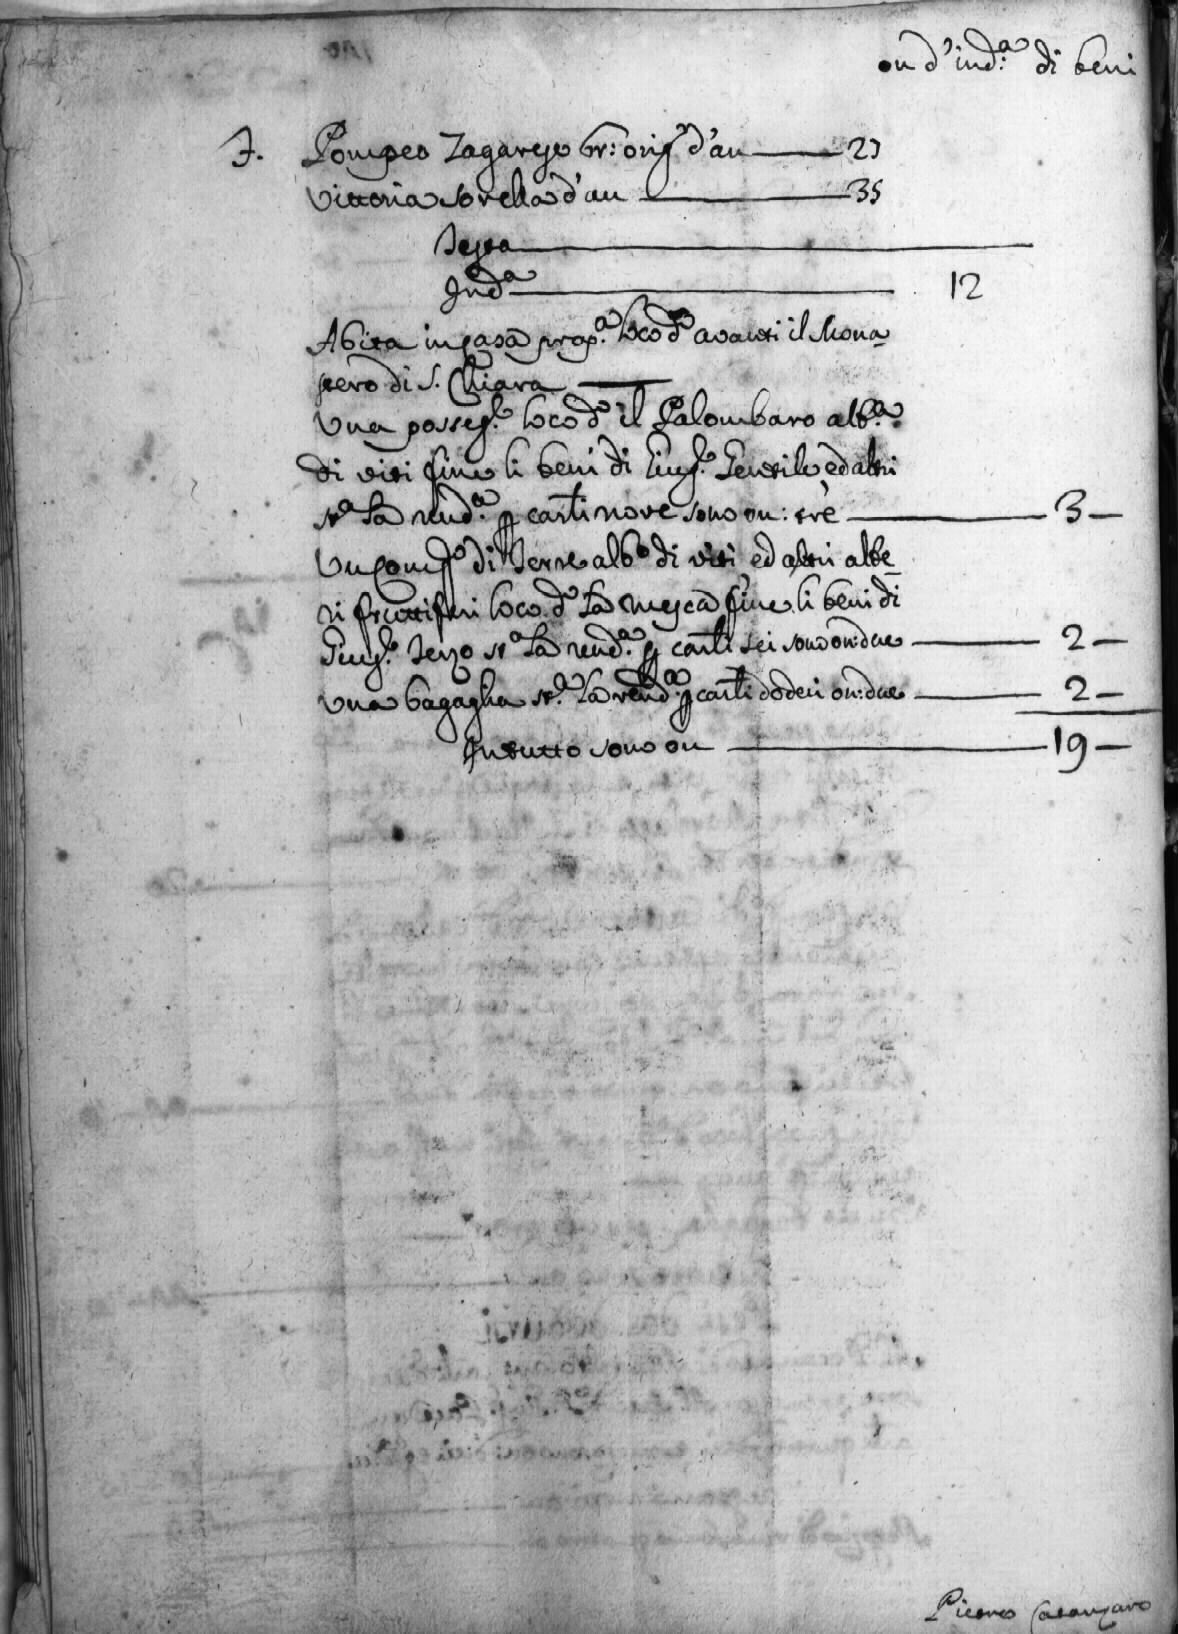 on d'ind.a di beni
F. Pompeo Zagarese br: orig.e d'an 23
Vittoria sorella d'an 35
Testa
Ind.a 12
Abita in casa prop.a loco d.o avanti il Mona
stero di S. Chiara
Una possess.e loco d.o il Palombaro alb.a
di viti fine li beni di Gius.e Gentile ed altri
st.a la rend.a p carlini nove sono on: trè 3 —
Un comp.o di Terre alb.o di viti ed altri albe
ri fruttiferi loco d.o la mesca fine li beni di
Gius.e Terzo st.a la rend.a p carlini sei sono on: due 2 —
Una bagaglia st.a la rend.a p carlini dodeci on: due 2 —
In tutto sono on 19 —
Pietro Catanzaro